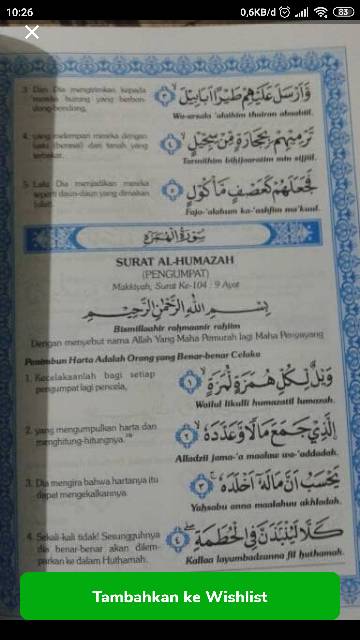 10:26 0,6KB/d 83
3. Dan Dia mengirimkan kepada
mereka burung yang berbon-
dong-bondong,
وَّاَرْسَلَ عَلَيْهِمْ طَيْرًا اَبَابِيْلَ ۙ ٣
Wa-arsala 'alaihim thairan abaabiil.
4. yang melempari mereka dengan
batu (berasal) dari tanah yang
terbakar.
تَرْمِيْهِمْ بِحِجَارَةٍ مِّنْ سِجِّيْلٍ ۙ ٤
Tarmiihim bihijaaratim min sijjiil.
5. Lalu Dia menjadikan mereka
seperti daun-daun yang dimakan
(ulat).
فَجَعَلَهُمْ كَعَصْفٍ مَّأْكُوْلٍ ٥
Faja-'alahum ka-'ashfim ma'kuul.
سُوْرَةُ الْهُمَزَةِ
SURAT AL-HUMAZAH
(PENGUMPAT)
Makkiyah, Surat Ke-104 : 9 Ayat
بِسْمِ اللّٰهِ الرَّحْمٰنِ الرَّحِيْمِ
Bismillaahir rahmaanir rahiim
Dengan menyebut nama Allah Yang Maha Pemurah lagi Maha Penyayang
Penimbun Harta Adalah Orang yang Benar-benar Celaka
1. Kecelakaanlah bagi setiap
pengumpat lagi pencela,
وَيْلٌ لِّكُلِّ هُمَزَةٍ لُّمَزَةٍ ۙ ١
Wailul likulli humazatil lumazah.
2. yang mengumpulkan harta dan
menghitung-hitungnya.
الَّذِيْ جَمَعَ مَالًا وَّعَدَّدَهٗ ۙ ٢
Alladzii jama-'a maalaw wa-'addadah.
3. Dia mengira bahwa hartanya itu
dapat mengekalkannya.
يَحْسَبُ اَنَّ مَالَهٗٓ اَخْلَدَهٗ ۚ ٣
Yahsabu anna maalahuu akhladah.
4. Sekali-kali tidak! Sesungguhnya
dia benar-benar akan dilem-
parkan ke dalam Huthamah.
كَلَّا لَيُنْۢبَذَنَّ فِى الْحُطَمَةِ ۖ ٤
Kallaa layumbadzanna fil huthamah.
Tambahkan ke Wishlist